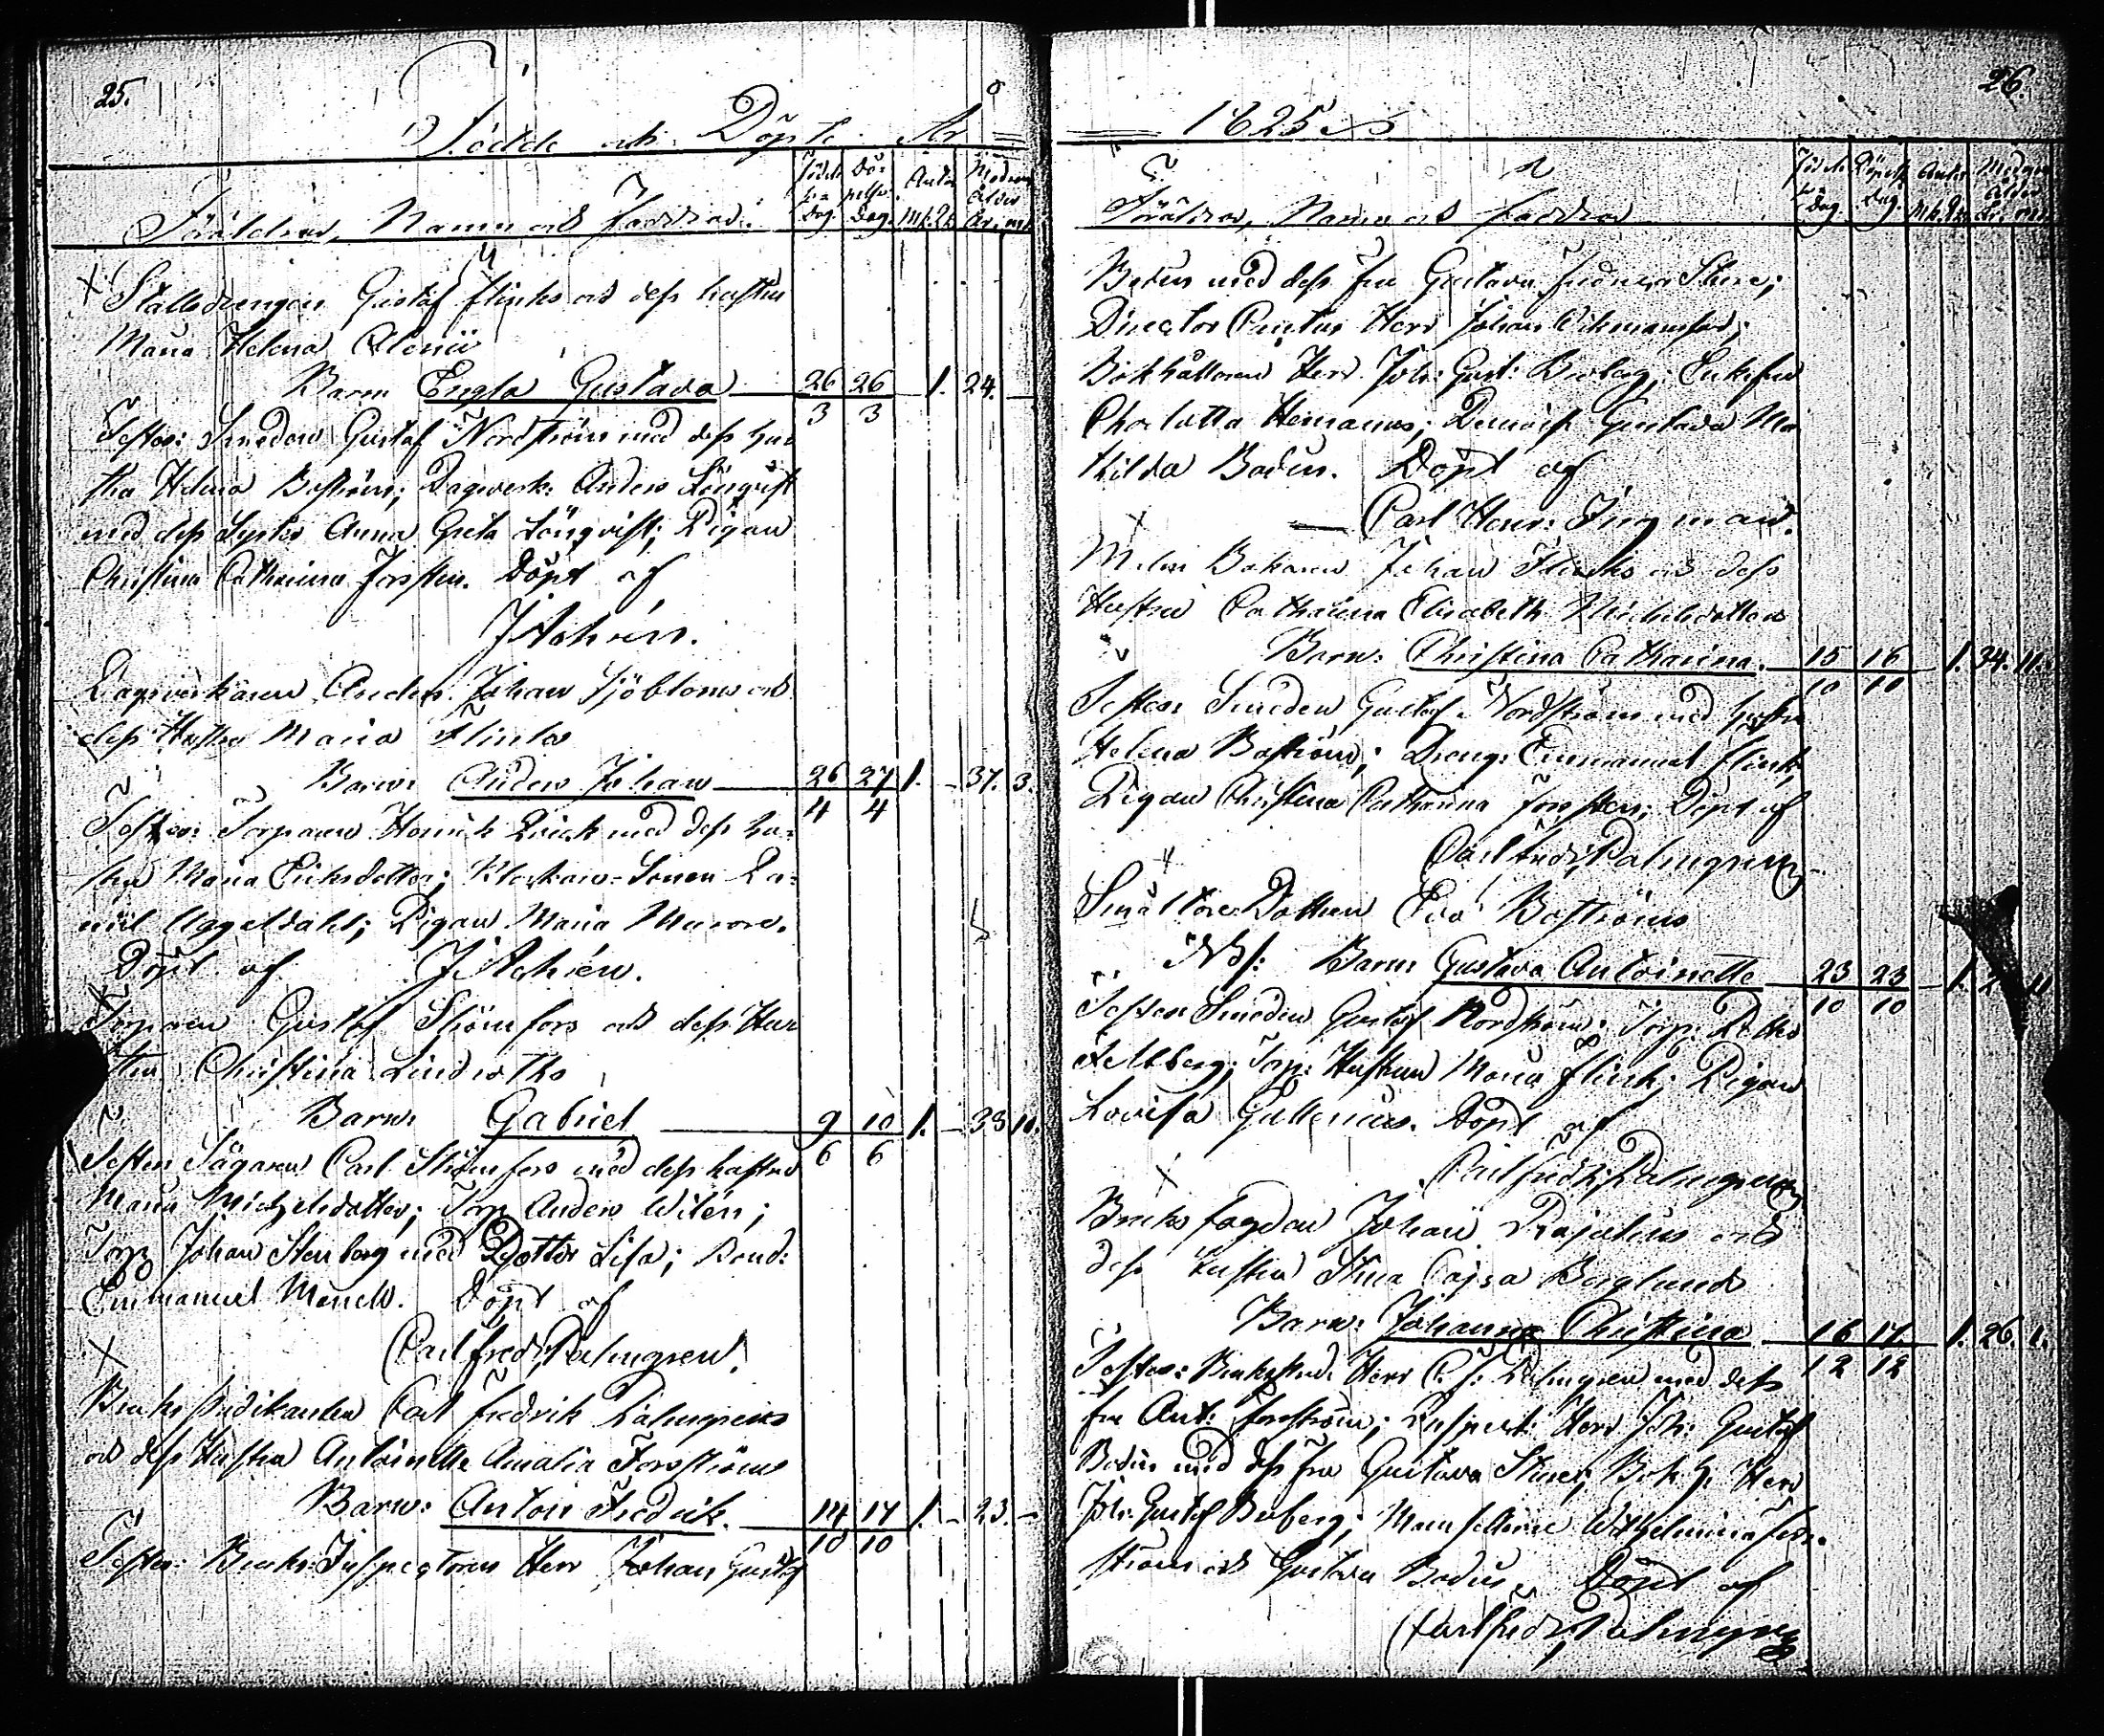 25.
Födde och Döpte År
Föräldrar, Namn och Faddrar.
Födelse Dag. Döpelse Dag. Antal M.k. Q.k. Modrens ålder År, mån.
Stalledrengen Gustaf Flinks och dess hustru
Maria Helena
Barn Engla Gustava 26/3 26/3 1. 24.
Testes: Smeden Gustaf Nordström med dess hus
tru Helena Boström; Dagsverk: Anders Lönqvist
med dess Syster Anna Greta Lönqvist; Pigan
Christina Catharina Forsten. Döpt af
J Achrén.
Dagsverkaren Anders Johan Sjöbloms och
dess Hustru Maria Flinks
Barn: Anders Johan 26/4 27/4 1. - 37. 3.
Testes: Torparen Henrik Qvick med dess hu-
stru Maria Eriksdotter; Klockare-Sonen Da-
niel Uggeldahl; Pigan Maria
Döpt af J Achrén.
Torparen Gustaf Strömfors och dess Hus
tru Christina Lindroths
Barn: Gabriel 9/6 10/6 1. - 33 10.
Testes Sågaren Carl Strömfors med dess hustru
Maria Michelsdotter; Torp Anders Wilén;
Torp Johan Stenberg med Dotter Lisa; Bond:
Emmanuel Døpt af
Carl Fredr: Palmgren.
Bruks Predikanten Carl Fredrik Palmgrens
och dess Hustru Antoinette Amalia Forsströms
Barn: Anton Fredrik. 14/10 17/10 1. - 23. -
Testes: Bruks-Inspectoren Herr Johan Gustaf
26.
1825
Föräldrar, Namn och Faddrar
Födelse Dag. Döpelse Dag. Antal M.k. Q.k. Modrens ålder År, mån.
Bodén med dess fru Gustava
Director Herr Johan
Bokhållaren Herr Joh: Gust: Broberg; Enkefru
Charlotta Demois. Gustava Ma
thilda Bodén. Döpt af
Carl Henr: Ingman.
Johan Flinks och dess
Hustru Catharina Elisabeth Michelsdotters
Barn: Christina Catharina. 15/10 16/10 1. 34. 11.
Testes: Smeden Gustaf Nordström med hustru
Helena Boström; Dreng: Emmanuel Flink;
Pigan Christina Catharina Forsten; Döpt af
Carl Fredr: Palmgren
Dottren Eva Boströms
Barn: Gustava Antoinette 23/10 23/10 1.
Testes Smeden Gustaf Nordström; Torp:
Fellberg; Torp: Hustrun Maria Flink; Pigan
Lovisa Döpt af
Carl Fredr: Palmgren
Bruks fogden Johan Rajalins och
dess Hustru Stina Cajsa Berglund
Barn: Johanna Christina 16/12 17/12 1. 26. 1.
Testes: Herr C. F: Palmgren med dess
fru Ant: Forsström; Inspect: Herr Joh: Gustaf
Bodén med dess fru Gustava Bokh. Herr
Joh: Gustaf Broberg; Wilhelmina Fors-
ström och Gustava Bodén, Döpt af
Carl Fredr: Palmgren